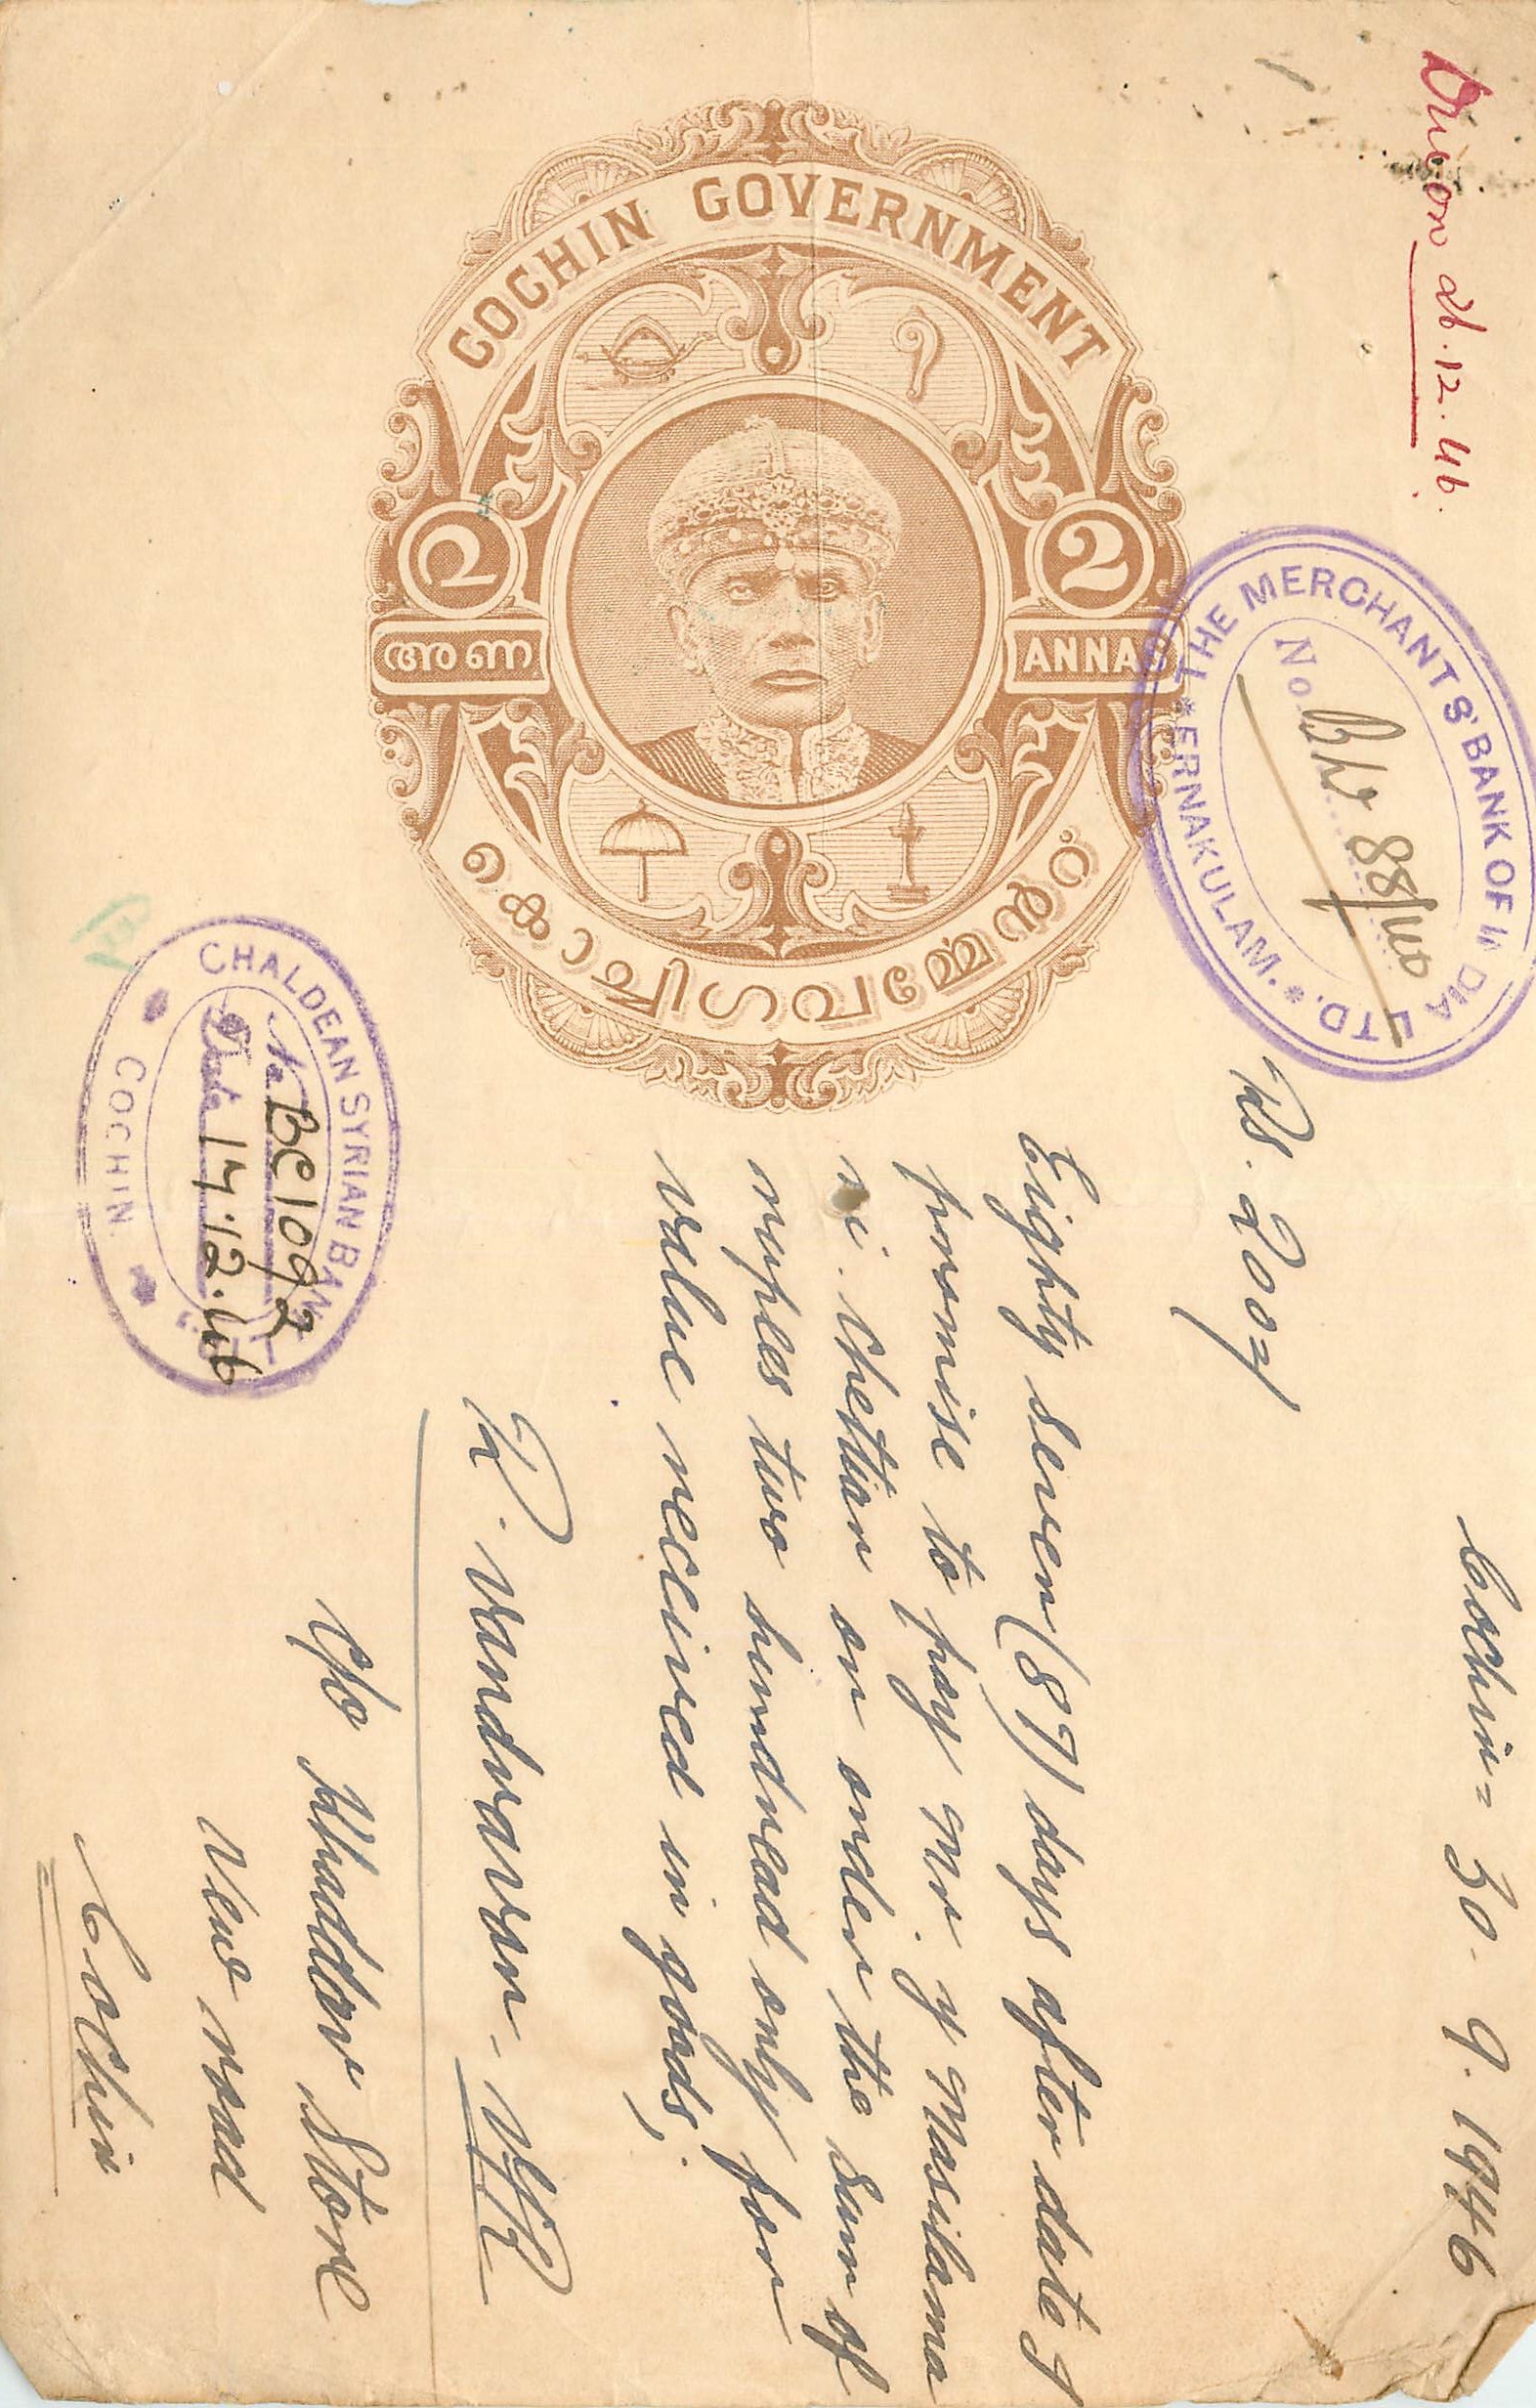 COCHIN GOVERNMENT
2
2
അണ
ANNAS
Due on 26.12.46.
THE MERCHANTS' BANK OF INDIA LTD.
No. 88/40
* ERNAKULAM. *
CHALDEAN SYRIAN BANK LTD.
No. BC 1092
Date 17.12.46
COCHIN
Cochin = 30. 9. 1946
Rs. 200/
Eighty seven (87) days after date I
promise to pay Mr. Y Masilama
ni. Chettiar or order the sum of
rupees two hundread only for
value received in goods,
R. Vandvavan
C/o Khaddar Store
New road
Cochin